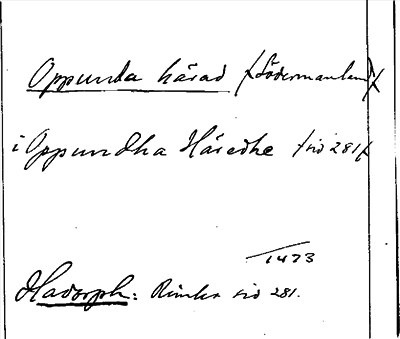 Oppunda härad /Södermanland/
i Oppundha Häredhe /sid 281/
1473
Hadorph: Rimkr sid 281.